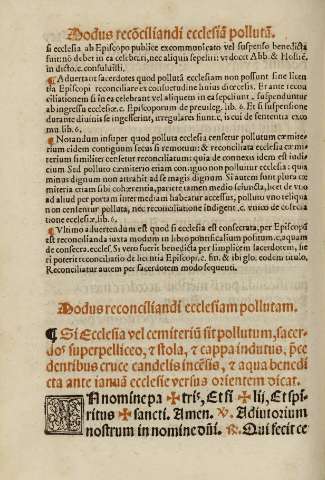 Modus recōciliandi ecclesiā pollutā.
Si ecclesia ab Episcopo publice excommunicato vel suspenso benedicta
fuit: nō debet in ea celebrari, nec aliquis sepeliri: vt docet Abb. & Hostiē.
in dicto. c. consuluisti.
¶ Aduertant sacerdotes quod pollutā ecclesiam non possunt sine licen
tia Episcopi reconciliare ex consuetudine huius diœcesis. Et ante recon
ciliationem si in ea celebrant vel aliquem in ea sepeliunt, suspenduntur
ab ingressu ecclesiæ. c. Episcoporum de preuileg. lib. 6. Et si suspensione
durante diuinis se ingesserint, irregulares fiunt. c. is cui de sententia exco
mu. lib. 6.
¶ Notandum insuper quod polluta ecclesia censetur pollutum cœmite
rium eidem contiguum secus si remotum: & reconciliata ecclesia & cœmi
terium similiter censetur reconciliatum: quia de connexis idem est iudi
cium. Sed polluto cœmiterio etiam contiguo non polluitur ecclesia: quia
minus dignum non attrahit ad se magis dignum. Si autem sunt plura cœ
miteria etiam sibi cohærentia, pariete tamen medio seiuncta, licet de vno
ad aliud per portam intermediam habeatur accessus, polluto vno reliqua
non censentur polluta, nec reconciliatione indigent, c. vnico de consecra
tione ecclesiæ. lib. 6.
¶ Vltimo aduertendum est quod si ecclesia est consecrata, per Episcopū
est reconcilianda iuxta modum in libro pontificalium positum. c. aquam
de consecra. eccles. Si vero fuerit benedicta per simplicem sacerdotem, li
ri poterit reconciliatio de licentia Episcopi. c. fin. & ibi glo. eodem titulo.
Reconciliatur autem per sacerdotem modo sequenti.
Modus reconciliandi ecclesiam pollutam.
¶ Si Ecclesia vel cemiteriū sit pollutum, sacer-
dos superpelliceo, & stola, & cappa indutus, p̄ce
dentibus cruce candelis incēsis, & aqua benedi
cta ante ianuā ecclesie versus orientem dicat.
IN nomine pa ✠ tris, Et fi ✠ lii, Et spi-
ritus ✠ sancti. Amen. ℣. Adiutorium
nostrum in nomine dñi. ℟. Qui fecit ce